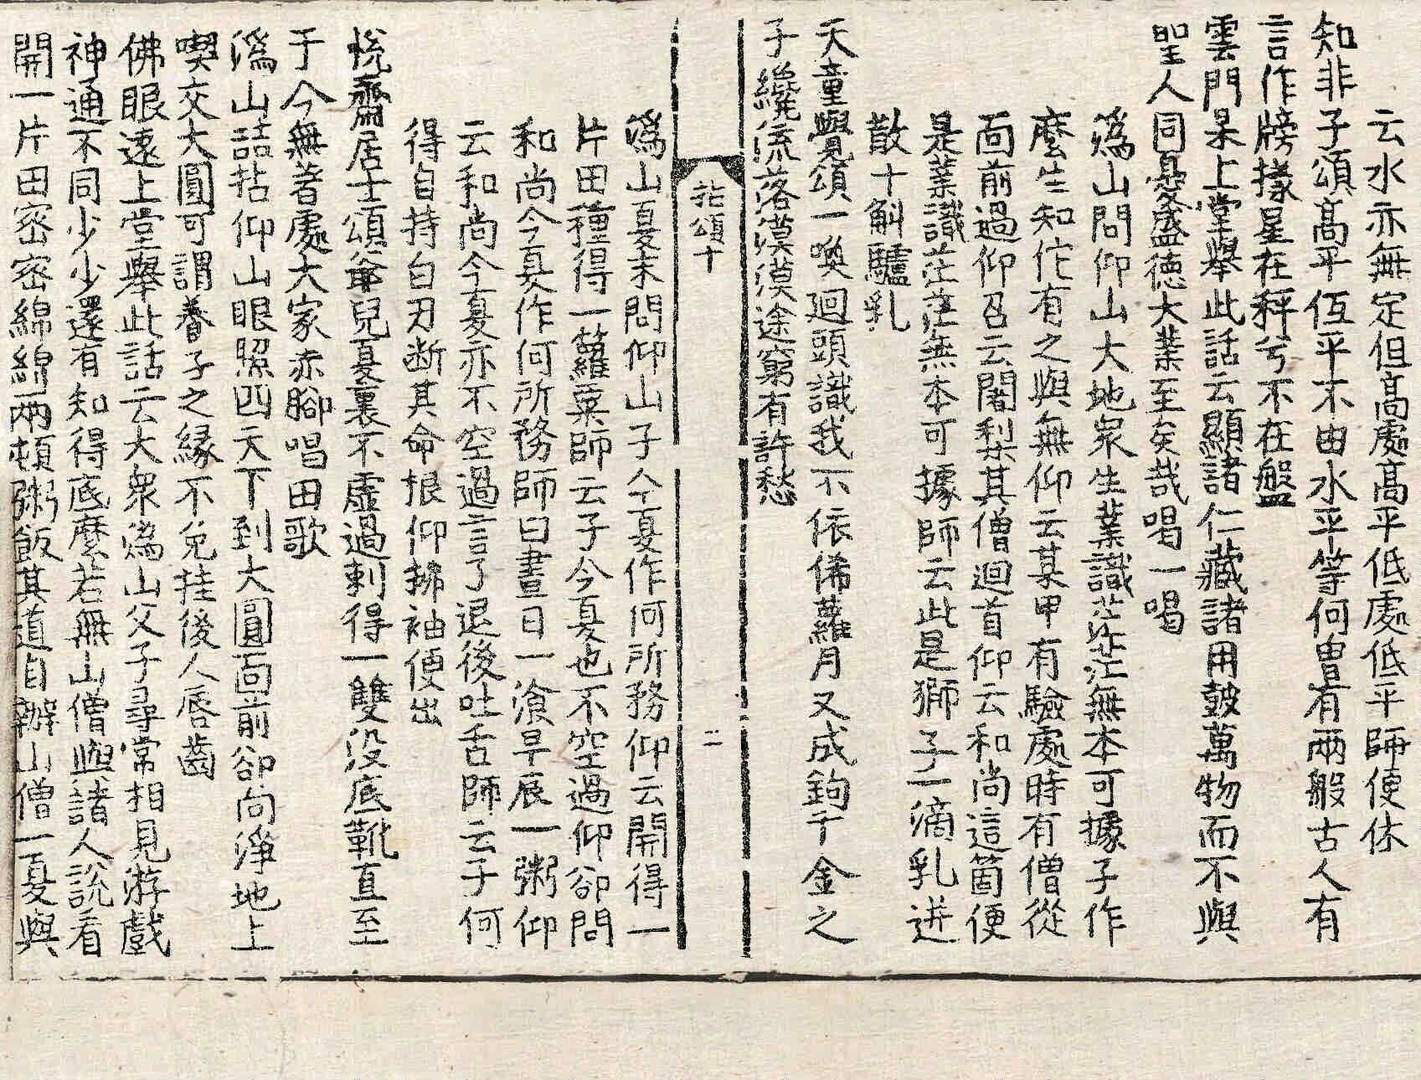 云水亦無定但高處高平低處低平師便休
知非子頌高平仾平不由水平等何曾有兩般古人有
言作牓㨾星在秤兮不在盤
雲門杲上堂舉此話云顯諸仁藏諸用鼓萬物而不與
聖人同憂盛德大業至矣哉喝一喝
溈山問仰山大地衆生業識茫茫無本可據子作
麼生知佗有之與無仰云某甲有驗處時有僧從
面前過仰召云闍梨其僧迴首仰云和尚這箇便
是業識茫茫無本可據師云此是獅子一滴乳迸
散十斛驢乳
天童覺頌一喚迴頭識我不依俙蘿月又成鉤千金之
子纔流落漠漠途窮有許愁
拈頌十
二
溈山夏末問仰山子今夏作何所務仰云開得一
片田種得一籮粟師云子今夏也不空過仰卻問
和尚今夏作何所務師曰晝日一飡早晨一粥仰
云和尚今夏亦不空過言了退後吐舌師云子何
得自持白刃斷其命根仰拂袖便出
悅齋居士頌爺兒夏裏不虛過剌得一雙沒底靴直至
于今無著處大家赤腳唱田歌
溈山喆拈仰山眼照四天下到大圓面前卻向淨地上
喫交大圓可謂養子之緣不免挂後人唇齒
佛眼遠上堂舉此話云大衆溈山父子尋常相見游戲
神通不同少少還有知得底麼若無山僧與諸人說看
開一片田密密綿綿兩頓粥飯其道自辦山僧一夏與